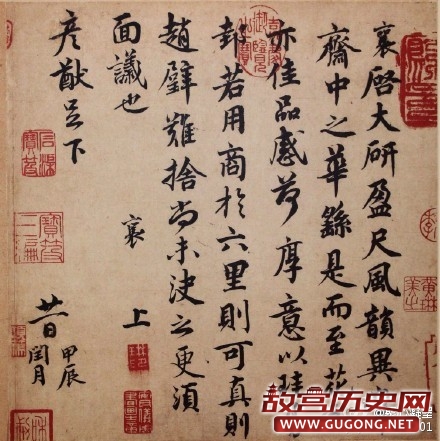 襄啓大研盈尺風韻異
齋中之華繇是而至花
亦佳品感荷厚意以珪
邽若用商於六里則可真則
趙璧難捨尚未决之更須
面議也
襄上
彦猷足下
廿一日
甲辰
閏月
故宫历史网
WWW.GUGONG.NET
01